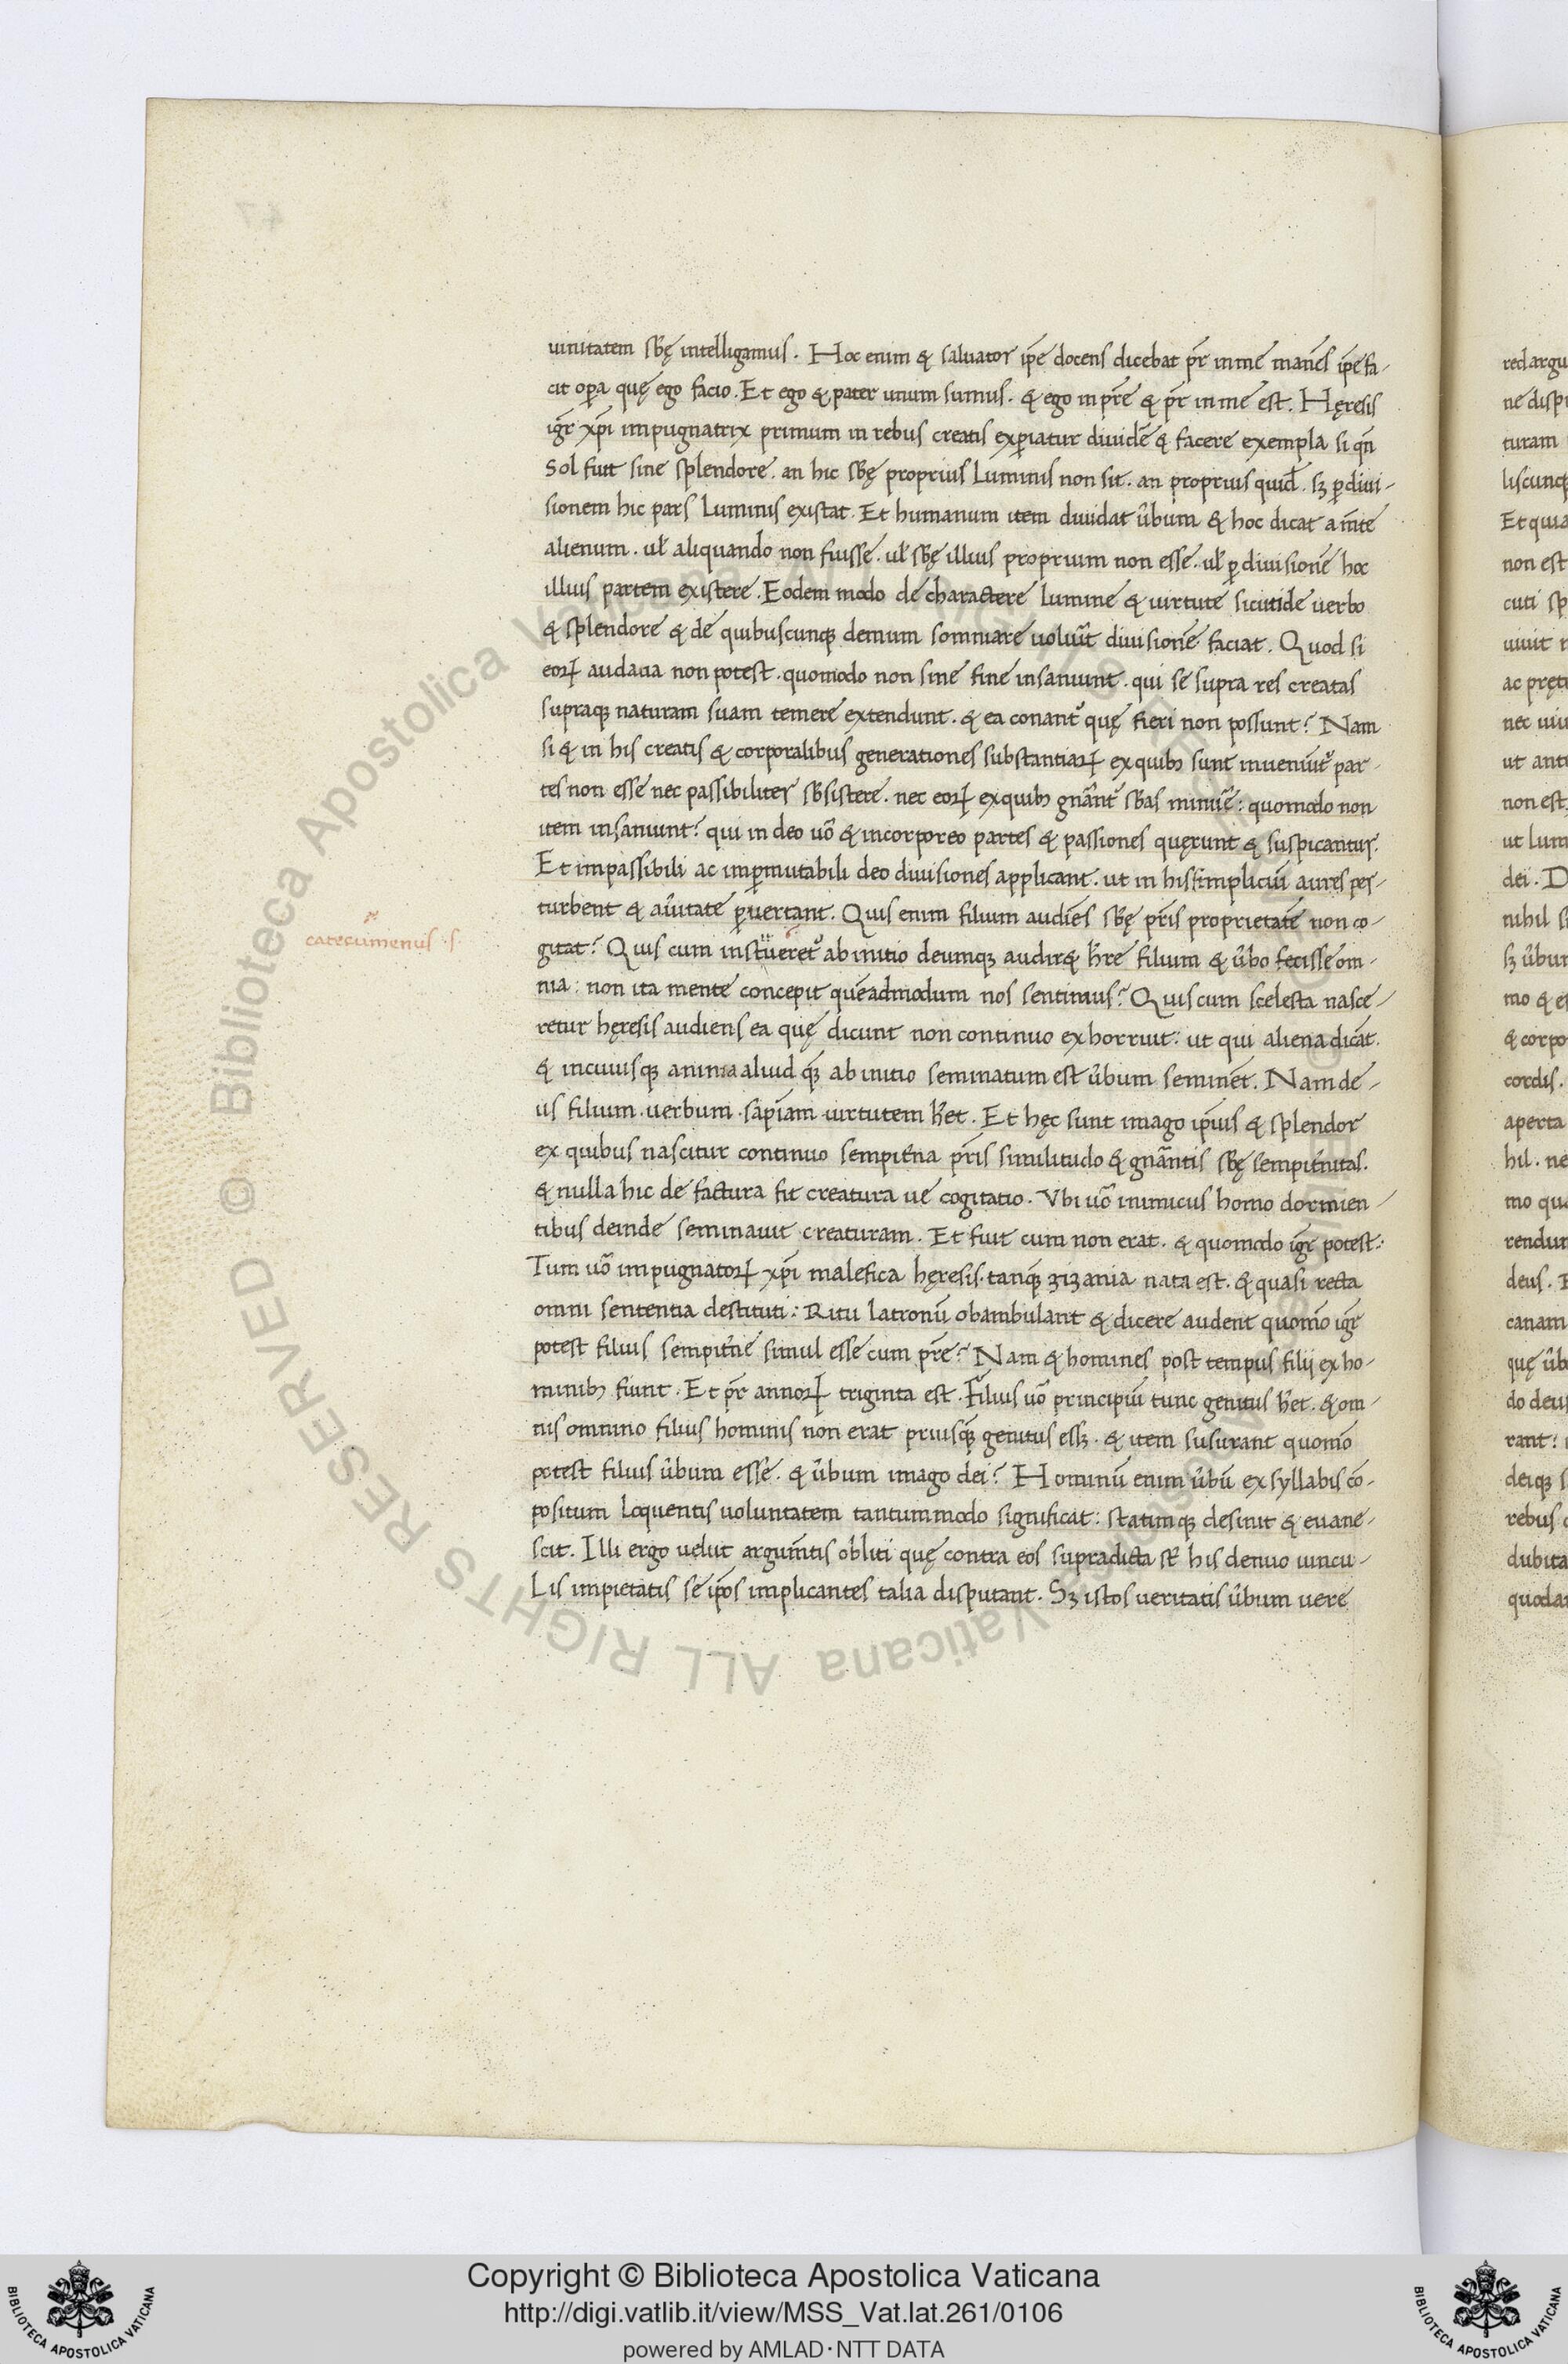 uinitatem sb̄ę intelligamus. Hoc enim & saluator ip̄e docens dicebat pr̄ in me manēs ip̄e fa-
cit op̄a quę ego facio. Et ego & pater unum sumus. & ego in pr̄e & pr̄ in me est. Hęresis
igr̄ xp̄i impugnatrix primum in rebus creatis exp̄iatur diuidē & facere exempla si qn̄
Sol fuit sine splendore. an hic sb̄ę proprius Luminis non sit. an proprius quid̄. sꝫ ꝑ diui-
sionem hic pars Luminis existat. Et humanum item diuidat ûbum & hoc dicat a m̄te
alienum. ul̄ aliquando non fuisse. ul̄ sb̄ę illius proprium non esse. ul̄ ꝑ diuisionē hoc
illius partem existere. Eodem modo de charactere lumine & uirtute sicuti de uerbo
& splendore & de quibuscunqꝫ demum somniare uoluūt diuisionē faciat. Quod si
eoꝝ audacia non potest. quomodo non sine fine insaniunt. qui se supra res creatas
supraqꝫ naturam suam temere extendunt. & ea conant᷑ quę fieri non possunt? Nam
si & in his creatis & corporalibus generationes substantiaꝝ ex quibꝫ sunt inueniūt᷑ par-
tes non esse nec passibiliter sb̄sistere. nec eoꝝ ex quibꝫ gnānt᷑ sb̄as minuē: quomodo non
item insaniunt? qui in deo uō & incorporeo partes & passiones quęrunt & suspicantur.
Et impassibili ac imꝑmutabili deo diuisiones applicant. ut in his simpliciū aures per-
turbent & a ûitate ꝑuertant. Quis enim filium audiēs sb̄ę pr̄is proprietatē non co-
gitat? Quis cum instueret᷑ ab initio deumqꝫ audiret hr̄e filium & ûbo fecisse om-
nia: non ita mente concepit quēadmodum nos sentimus? Quis cum scelesta nasce-
retur hęresis audiens ea quę dicunt non continuo exhorruit: ut qui aliena dicāt.
& in cuiusqꝫ anima aliud qꝫ̄ ab initio seminatum est ûbum seminēt. Nam de-
us filium. uerbum. sap̄iam uirtutem hēt. Et hęc sunt imago ip̄ius & splendor
ex quibus nascitur continuo sempiêna pr̄is similitudo & gnāntis sb̄ę sempiênitas.
& nulla hic de factura fit creatura ue cogitatio. Vbi uō inimicus homo dormien-
tibus deinde seminauit creaturam. Et fuit cum non erat. & quomodo igr̄ potest:
Tum uō impugnatoꝝ xp̄i malefica hęresis. tanqꝫ̄ zizania nata est. & quasi recta
omni sententia destituti: Ritu latronū obambulant & dicere audent quomō igr̄
potest filius sempiêne simul esse cum pr̄e? Nam & homines post tempus filij ex ho-
minibꝫ fiunt. Et pr̄ annoꝝ triginta est. Filius uō principiū tunc genitus hēt. & om-
nis omnino filius hominis non erat priusqꝫ̄ genitus essꝫ. & item susurant quomō
potest filius ûbum esse. & ûbum imago dei? Hominū enim ûbū ex syllabis cō-
positum loquentis uoluntatem tantummodo significat: statimqꝫ desinit & euane-
scit. Illi ergo uelut argum̄tis obliti quę contra eos supradicta st̄ his denuo uincu-
Lis impietatis se ip̄os implicantes talia disputant. Sꝫ istos ueritatis ûbum uere
catecumenus .s.
redargu
turam
Et quia
non est
cuti sp
uiuit n
nec uiu
non est
ut lum
dei. D
nihil s
sꝫ ûbum
mo & e
& corpo
cordis.
aperta
hil. ne
mo qua
deus.
canam
quę ûb
do deus
rant?
deiqꝫ s
rebus
dubita
© Biblioteca Apostolica Vaticana ALL RIGHTS RESERVED
Copyright © Biblioteca Apostolica Vaticana
http://digi.vatlib.it/view/MSS_Vat.lat.261/0106
powered by AMLAD·NTT DATA
BIBLIOTECA APOSTOLICA VATICANA
BIBLIOTECA APOSTOLICA VATICANA